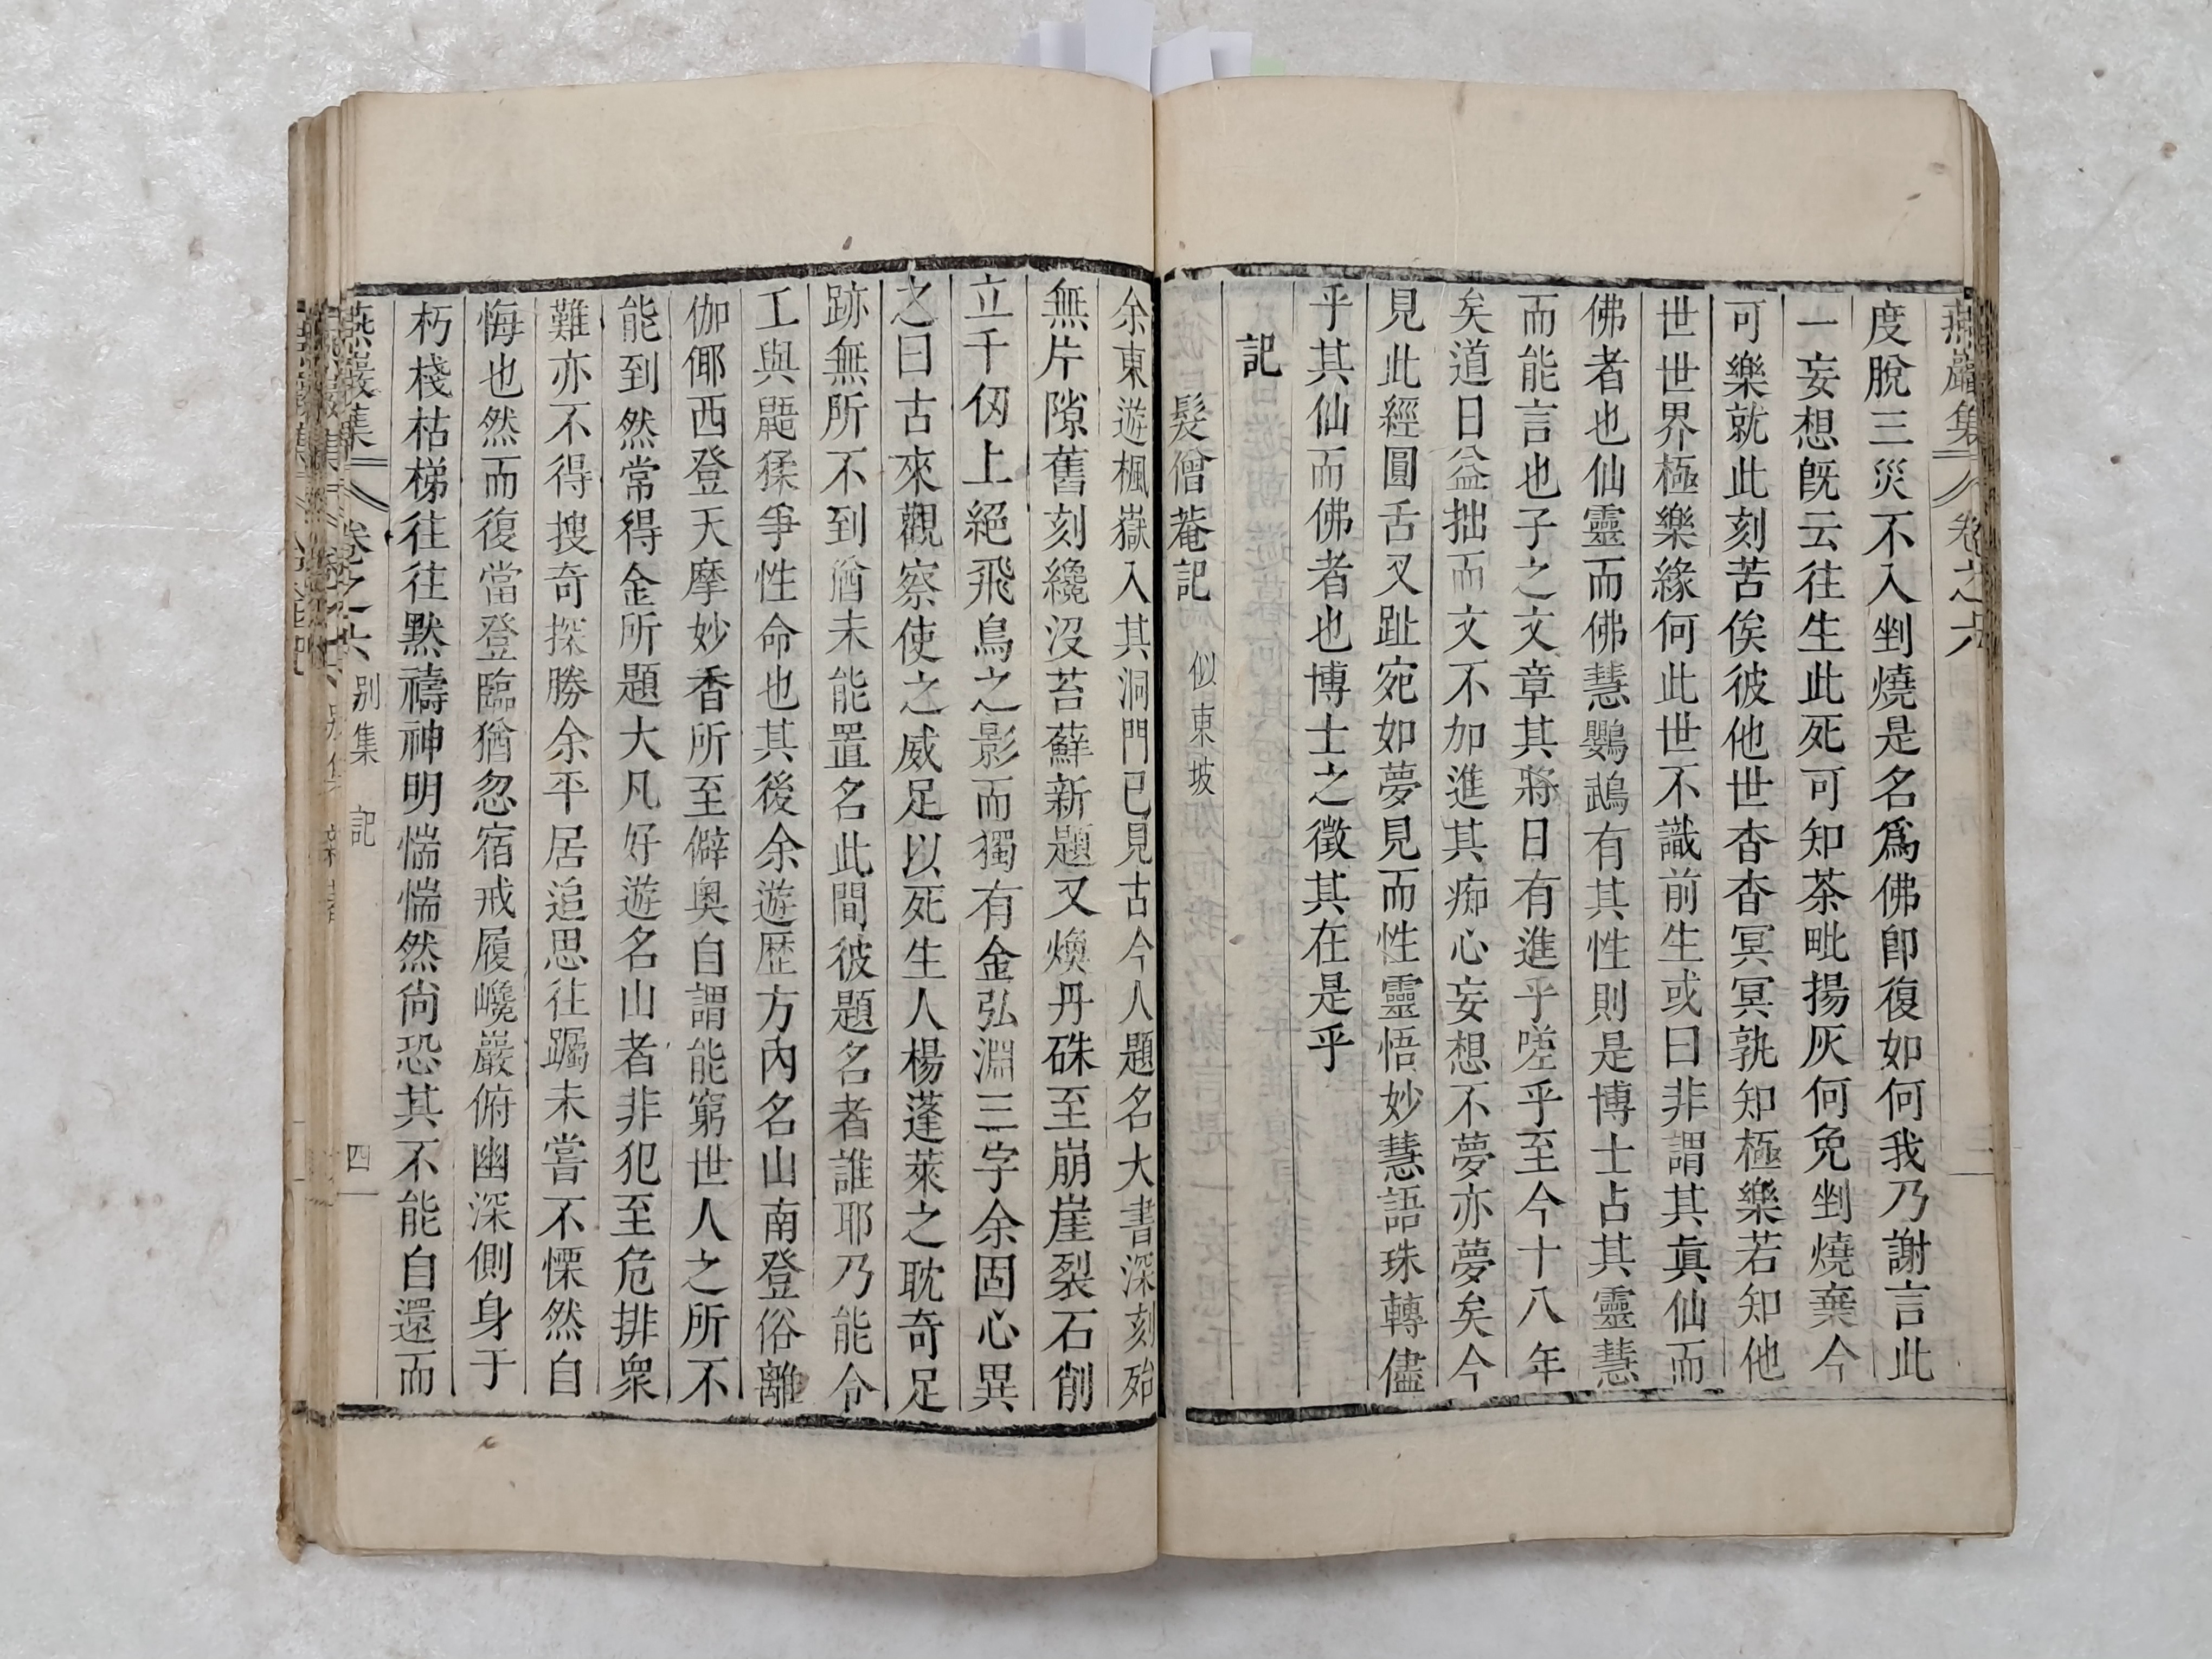 燕巖集 卷之六
度脫三災不入剉燒是名爲佛卽復如何我乃謝言此
一妄想旣云往生此死可知茶毗揚灰何免剉燒棄今
可樂就此刻苦俟彼他世杳杳冥冥孰知極樂若知他
世世界極樂緣何此世不識前生或曰非謂其眞仙而
佛者也仙靈而佛慧鸚鵡有其性則是博士占其靈慧
而能言也子之文章其將日有進乎嗟乎至今十八年
矣道日益拙而文不加進其痴心妄想不夢亦夢矣今
見此經圓舌叉趾宛如夢見而性靈悟妙慧語珠轉儘
乎其仙而佛者也博士之徵其在是乎
記
髮僧菴記 似東坡
余東遊楓嶽入其洞門已見古今人題名大書深刻殆
無片隙舊刻纔沒苔蘚新題又煥丹硃至崩崖裂石削
立千仞上絕飛鳥之影而獨有金弘淵三字余固心異
之曰古來觀察使之威足以死生人楊蓬萊之耽奇足
跡無所不到猶未能置名此間彼題名者誰耶乃能令
工與鼯猱爭性命也其後余遊歷方內名山南登俗離
伽倻西登天摩妙香所至僻奧自謂能窮世人之所不
能到然常得金所題大凡好遊名山者非犯至危排衆
難亦不得搜奇探勝余平居追思往躅未嘗不慄然自
悔也然而復當登臨猶忽宿戒履巉巖俯幽深側身于
朽棧枯梯往往默禱神明惴惴然尙恐其不能自還而
燕巖集 卷之六 別集 記 四